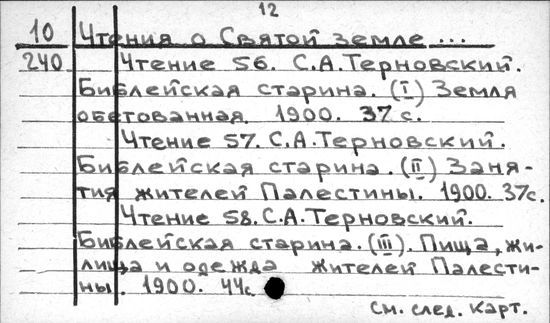 12
10 Чтения о Святой Земле ...
240 Чтение 56. С.А.Терновский.
Библейская старина. (I) Земля
обетованная. 1900. 37 с.
Чтение 57. С.А.Терновский.
Библейская старина. (II) Заня-
тия жителей Палестины. 1900. 37с.
Чтение 58. С.А.Терновский.
Библейская старина. (III). Пища, жи-
лища и одежда жителей Палести-
ны. 1900. 44с.
см. след. карт.